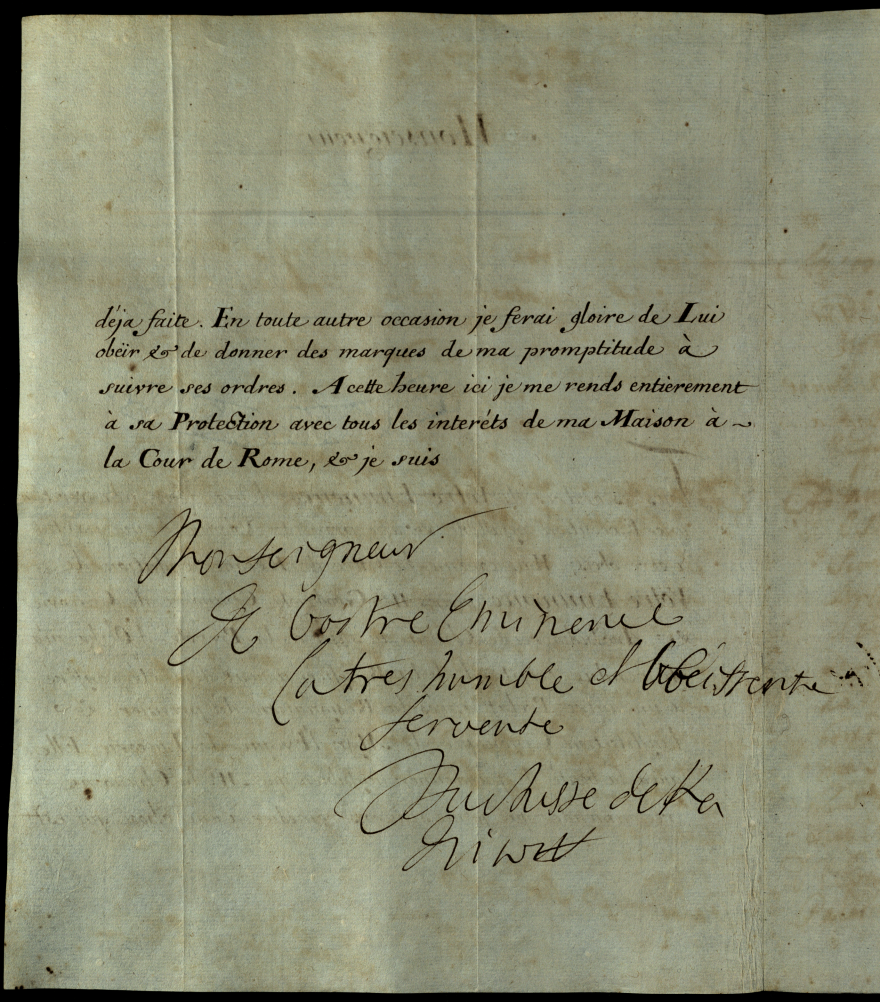 déja faite. En toute autre occasion je ferai gloire de Lui
obëir & de donner des marques de ma promptitude à
suivre ses ordres. A cette heure ici je me rends entièrement
à sa Protection avec tous les interéts de ma Maison à ~
la Cour de Rome, & je suis
Monseigneur
De Vostre Eminence
La tres humble et obeissente
servente
Duchesse de